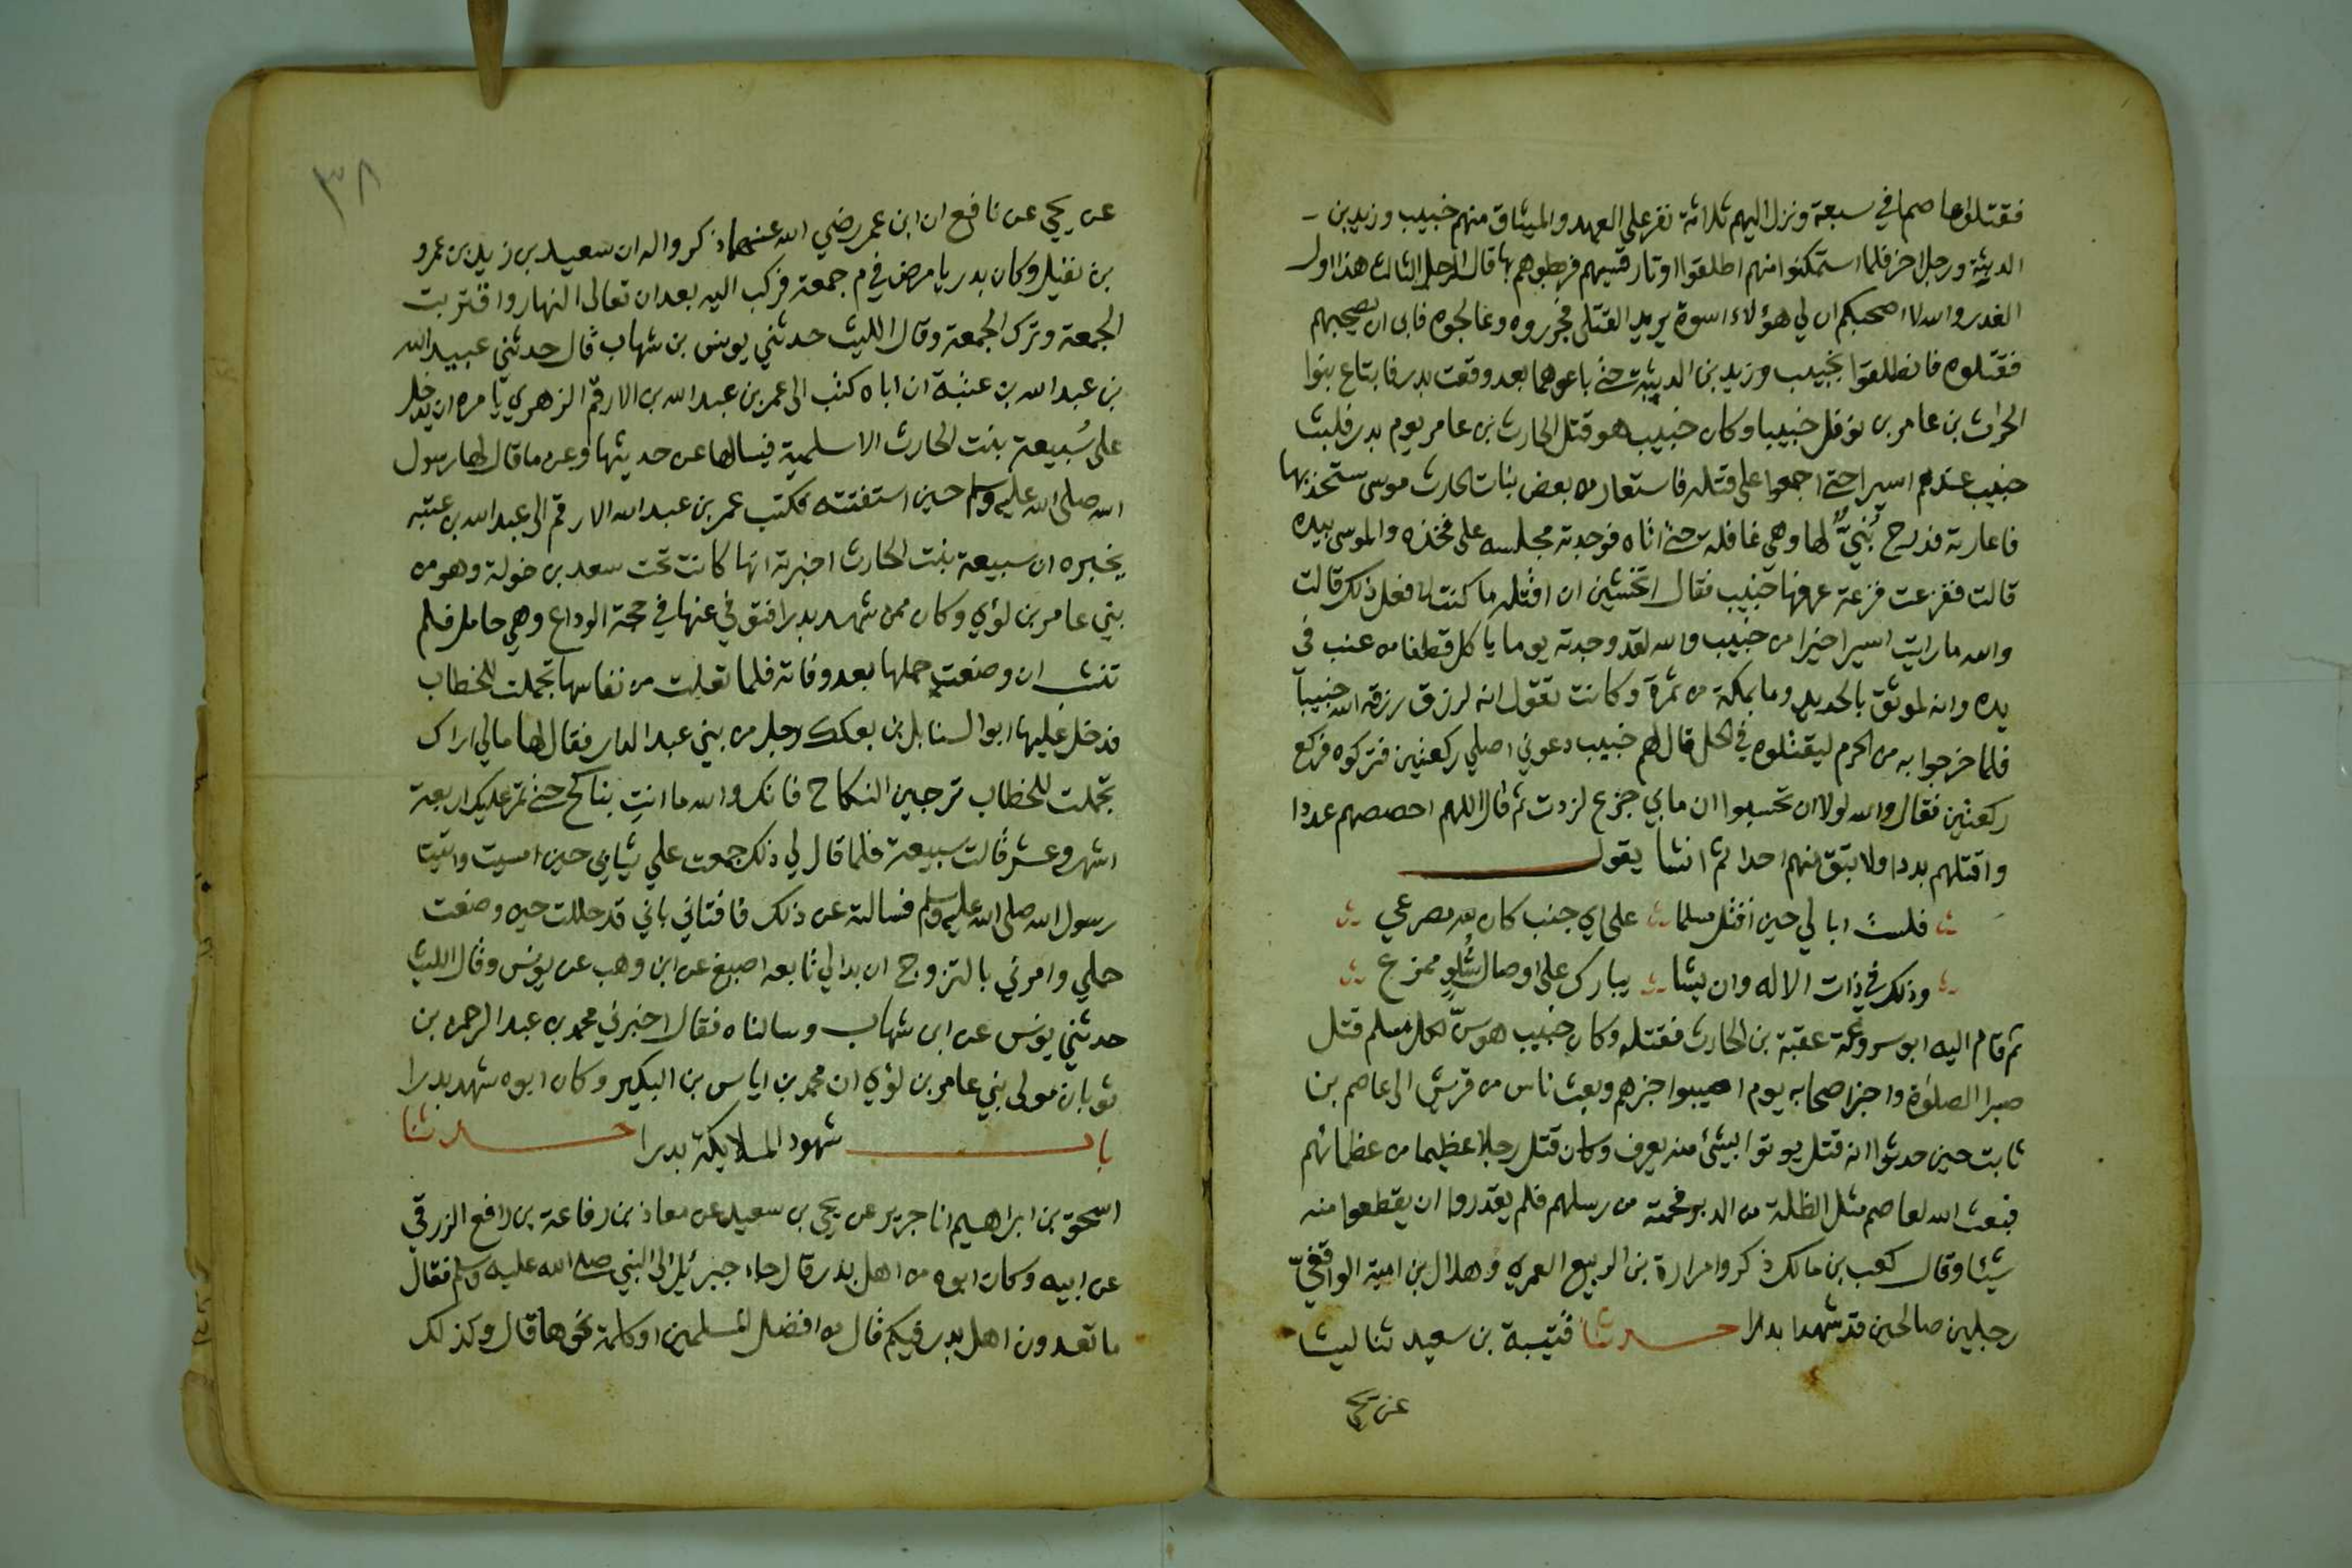 فقتلوا عاصما في سبعة ونزل اليهم ثلاثة نفر على العهد والميثاق منهم خبيب وزيد بن
الدثنة ورجل اخر فلما استمكنوا منهم اطلقوا اوتار قسيهم فربطوهم بها قال الرجل الثالث هذا اول
الغدر والله لا اصحبكم ان لي هؤلاء اسوة يريد القتلى فجرروه وعالجوه فابى ان يصحبهم
فقتلوه فانطلقوا بخبيب وزيد بن الدثنة حتى باعوهما بعد وقعت بدر فابتاع بنوا
الحرث بن عامر بن نوفل خبيبا وكان خبيب هو قتل الحارث بن عامر يوم بدر فلبث
خبيب عندهم اسيرا حتى اجمعوا على قتله فاستعار من بعض بنات الحارث موسى يستحد بها
فاعارته فدرج بُنيٌّ لها وهي غافله حتى اتاه فوجدته مجلسه على فخذه والموسى بيده
قالت ففزعت فزعة عرفها خبيب فقال اتخشين ان اقتله ما كنت لافعل ذلك قالت
والله ما رايت اسيرا خيرا من خبيب والله لقد وجدته يوما ياكل قطفا من عنب في
يده وانه لموثق بالحديد وما بمكة من ثمرة وكانت تقول انه لرزق رزقه الله خبيبا
فلما خرجوا به من الحرم ليقتلوه في الحل قال لهم خبيب دعوني اصلي ركعتين فتركوه فركع
ركعتين فقال والله لولا ان تحسبوا ان مابي جزع لزدت ثم قال اللهم احصهم عددا
واقتلهم بددا ولا تبق منهم احدا ثم انشا يقول
فلست ابالي حين اقتل مسلما على اي جنب كان لله مصرعي
وذلك في ذات الاله وان يشا يبارك على اوصال شُلوٍ ممزع
ثم قام اليه ابو سروعة عقبة بن الحارث فقتله وكان خبيب هو سنّ لكل مسلم قتل
صبرا الصلوة واخبر اصحابه يوم اصيبوا خبرهم وبعث ناس من قريش الى عاصم بن
ثابت حين حدثوا انه قتل يوتوا بشئ منه يعرف وكان قتل رجلا عظيما من عظمائهم
فبعث الله لعاصم مثل الظلة من الدبر فحمته من رسلهم فلم يقدروا ان يقطعوا منه
شيئا وقال كعب بن مالك ذكروا مرارة بن الربيع العمري وهلال بن امية الواقفيّ
رجلين صالحين قد شهدا بدرا حدثنا قتيبة بن سعيد ثنا ليث
عن يحيى
٣٨
عن يحيى عن نافع ان ابن عمر رضي الله عنهما ذكروا له ان سعيد بن زيد بن عمرو
بن نفيل وكان بدريا مرض في م جمعة فركب اليه بعد ان تعالى النهار واقتربت
الجمعة وترك الجمعة وقال الليث حدثني يونس بن شهاب قال حدثني عبيد الله
بن عبد الله بن عتبة ان اباه كتب الى عمر بن عبد الله بن الارقم الزهري يامره ان يدخل
على سُبيعة بنت الحارث الاسلمية فيسالها عن حديثها وعن ما قال لها رسول
الله صلى الله عليه وسلم حين استفتته فكتب عمر بن عبد الله الارقم الى عبد الله بن عتبه
يخبره ان سبيعة بنت الحارث اخبرته انها كانت تحت سعد بن خولة وهو من
بني عامر بن لؤي وكان ممن شهد بدرا فتوفي عنها في حجة الوداع وهي حامل فلم
تنشب ان وضعت حملها بعد وفاته فلما تعلت من نفاسها تجملت للخطاب
فدخل عليها ابو السنابل بن بعكك رجل من بني عبد الدار فقال لها مالي اراك
تجملت للخطاب ترجين النكاح فانك والله ما انتِ بناكح حتى تمر عليك اربعة
اشهر وعشر قالت سبيعة فلما قال لي ذلك جمعت علي ثيابي حين امسيت واتيت
رسول الله صلى الله عليه وسلم فسالته عن ذلك فافتاني باني قد حللت حين وضعت
حملي وامرني بالتزوج ان بدا لي تابعه اصبغ عن ابن وهب عن يونس وقال الليث
حدثني يونس عن ابن شهاب وسالناه فقال اخبرني محمد بن عبد الرحمن بن
ثوبان مولى بني عامر بن لؤي ان محمد بن اياس بن البكير وكان ابوه شهد بدرا
باب شهود الملايكة بدرا حدثنا
اسحق بن ابراهيم انا جرير عن يحيى بن سعيد عن معاذ بن رفاعة بن رافع الزرقي
عن ابيه وكان ابوه من اهل بدر قال جاء جبرئيل الى النبي صلى الله عليه وسلم فقال
ما تعدون اهل بدر فيكم قال من افضل المسلمين او كلمة نحوها قال وكذلك